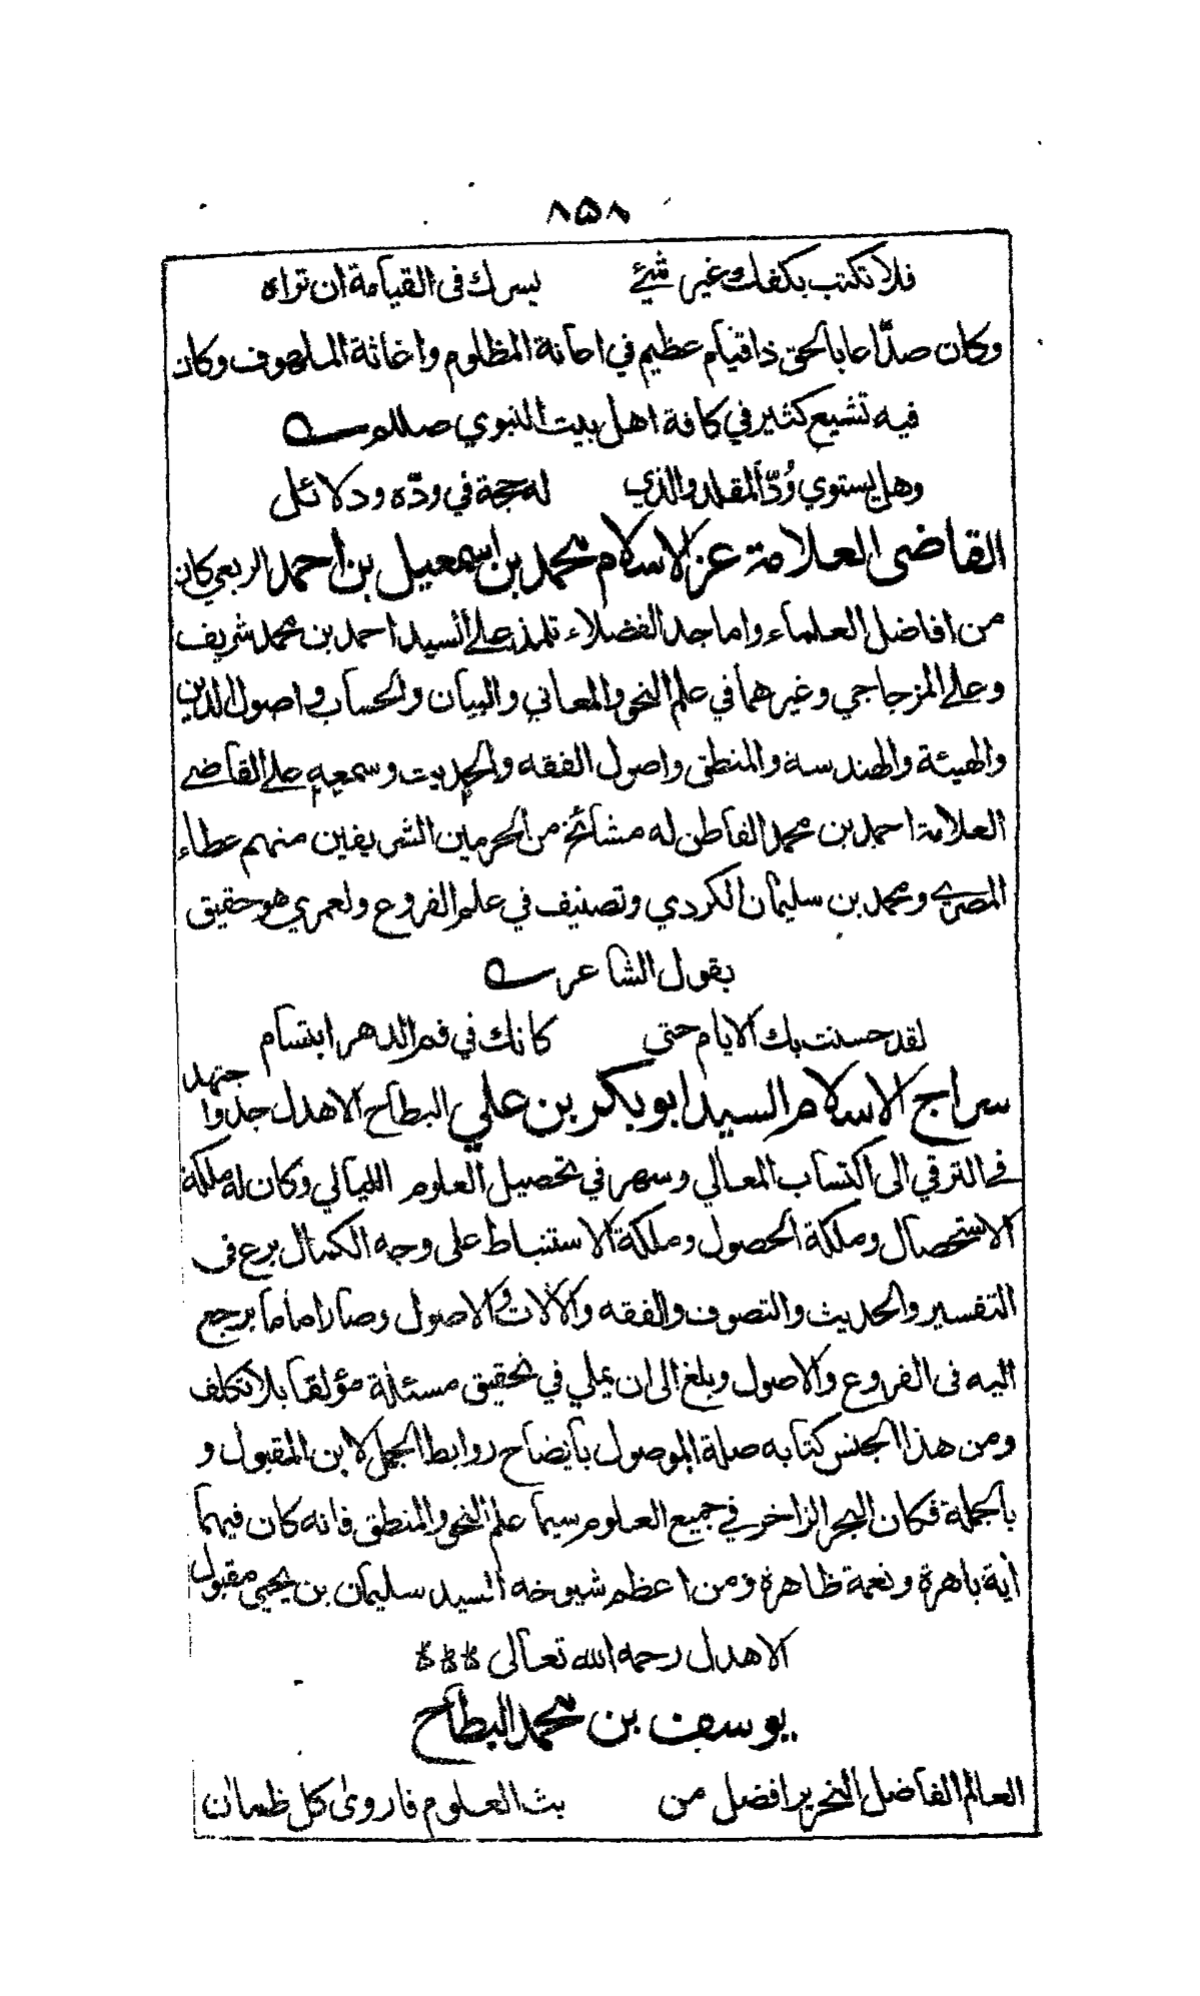 ٨۵٨
فلا تكتب بكفك غير شيئ يسرك فى القيامة ان تراه
وكان صدّاعا بالحق ذا قيام عظيم في اعانة المظلوم واغاثة الملهوف وكان
فيه تشيع كثير في كافة اهل بيت النبوي صللم
وهل يستوي وُدّ المقلد والذي له حجة في ودّه ودلائل
القاضى العلامة عز الاسلام محمد بن اسمعيل بن احمد الربعي كان
من افاضل العلماء واماجد الفضلاء تلمذ على السيد احمد بن محمد شريف
وعلى المزجاجي وغيرهما في علم النحو والمعاني والبيان والحساب واصول الدين
والهيئة والهندسة والمنطق واصول الفقه والحديث وسمعه على القاضي
العلامة احمد بن محمد القاطن له مشائخ من الحرمين الشريفين منهم عطاء
المصري ومحمد بن سليمان الكردي وتصنيف في علم الفروع ولعمري هو حقيق
بقول الشاعر
لقد حسنت بك الايام حتى كانك في فم الدهر ابتسام
سراج الاسلام السيد ابو بكر بن علي البطاح الاهدل جد واجتهد
في الترقي الى اكتساب المعالي وسهر في تحصيل العلوم الليالي وكان له ملكة
الاستحصال وملكة الحصول وملكة الاستنباط على وجه الكمال برع فى
التفسير والحديث والتصوف والفقه والآلات والاصول وصار اماما يرجع
اليه فى الفروع والاصول وبلغ الى ان يملي في تحقيق مسئلة مؤلفا بلا تكلف
ومن هذا الجنس كتابه صلة الموصول بايضاح روابط الجمل لابن المقبول و
بالجملة فكان البحر الزاخر في جميع العلوم سيما علم النحو والمنطق فانه كان فيهما
اية باهرة ونعمة ظاهرة ومن اعظم شيوخه السيد سليمان بن يحيى مقبول
الاهدل رحمه الله تعالى
يوسف بن محمد البطاح
العالم الفاضل النحرير افضل من بث العلوم فاروى كل ظمان